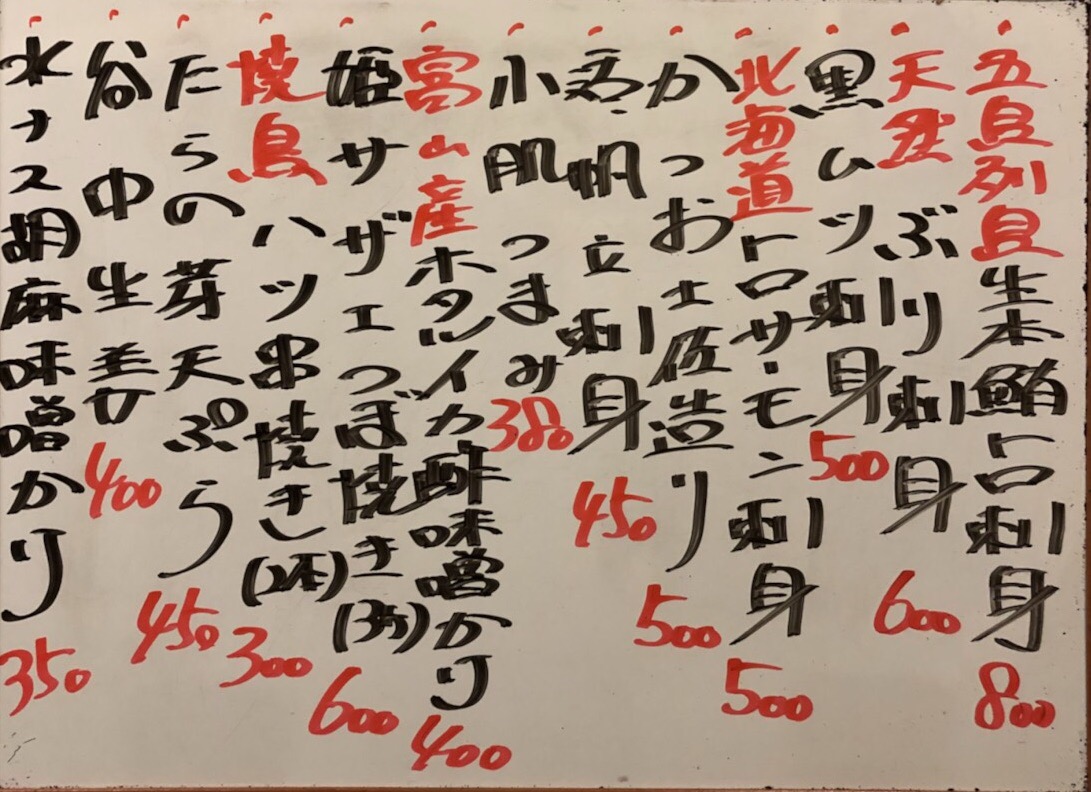 五島列島生本鮪トロ刺身 800
天然ぶり刺身 600
黒ムツ刺身 500
北海道トロサーモン刺身 500
かつお土佐造り 500
帆立刺身 450
小肌つまみ 380
富山産ホタルイカ酢味噌かけ 400
姫サザエつぼ焼き(3ヶ) 600
焼鳥ハツ串焼き(2本) 300
たらの芽天ぷら 450
谷中生姜 400
水ナス胡麻味噌かけ 350